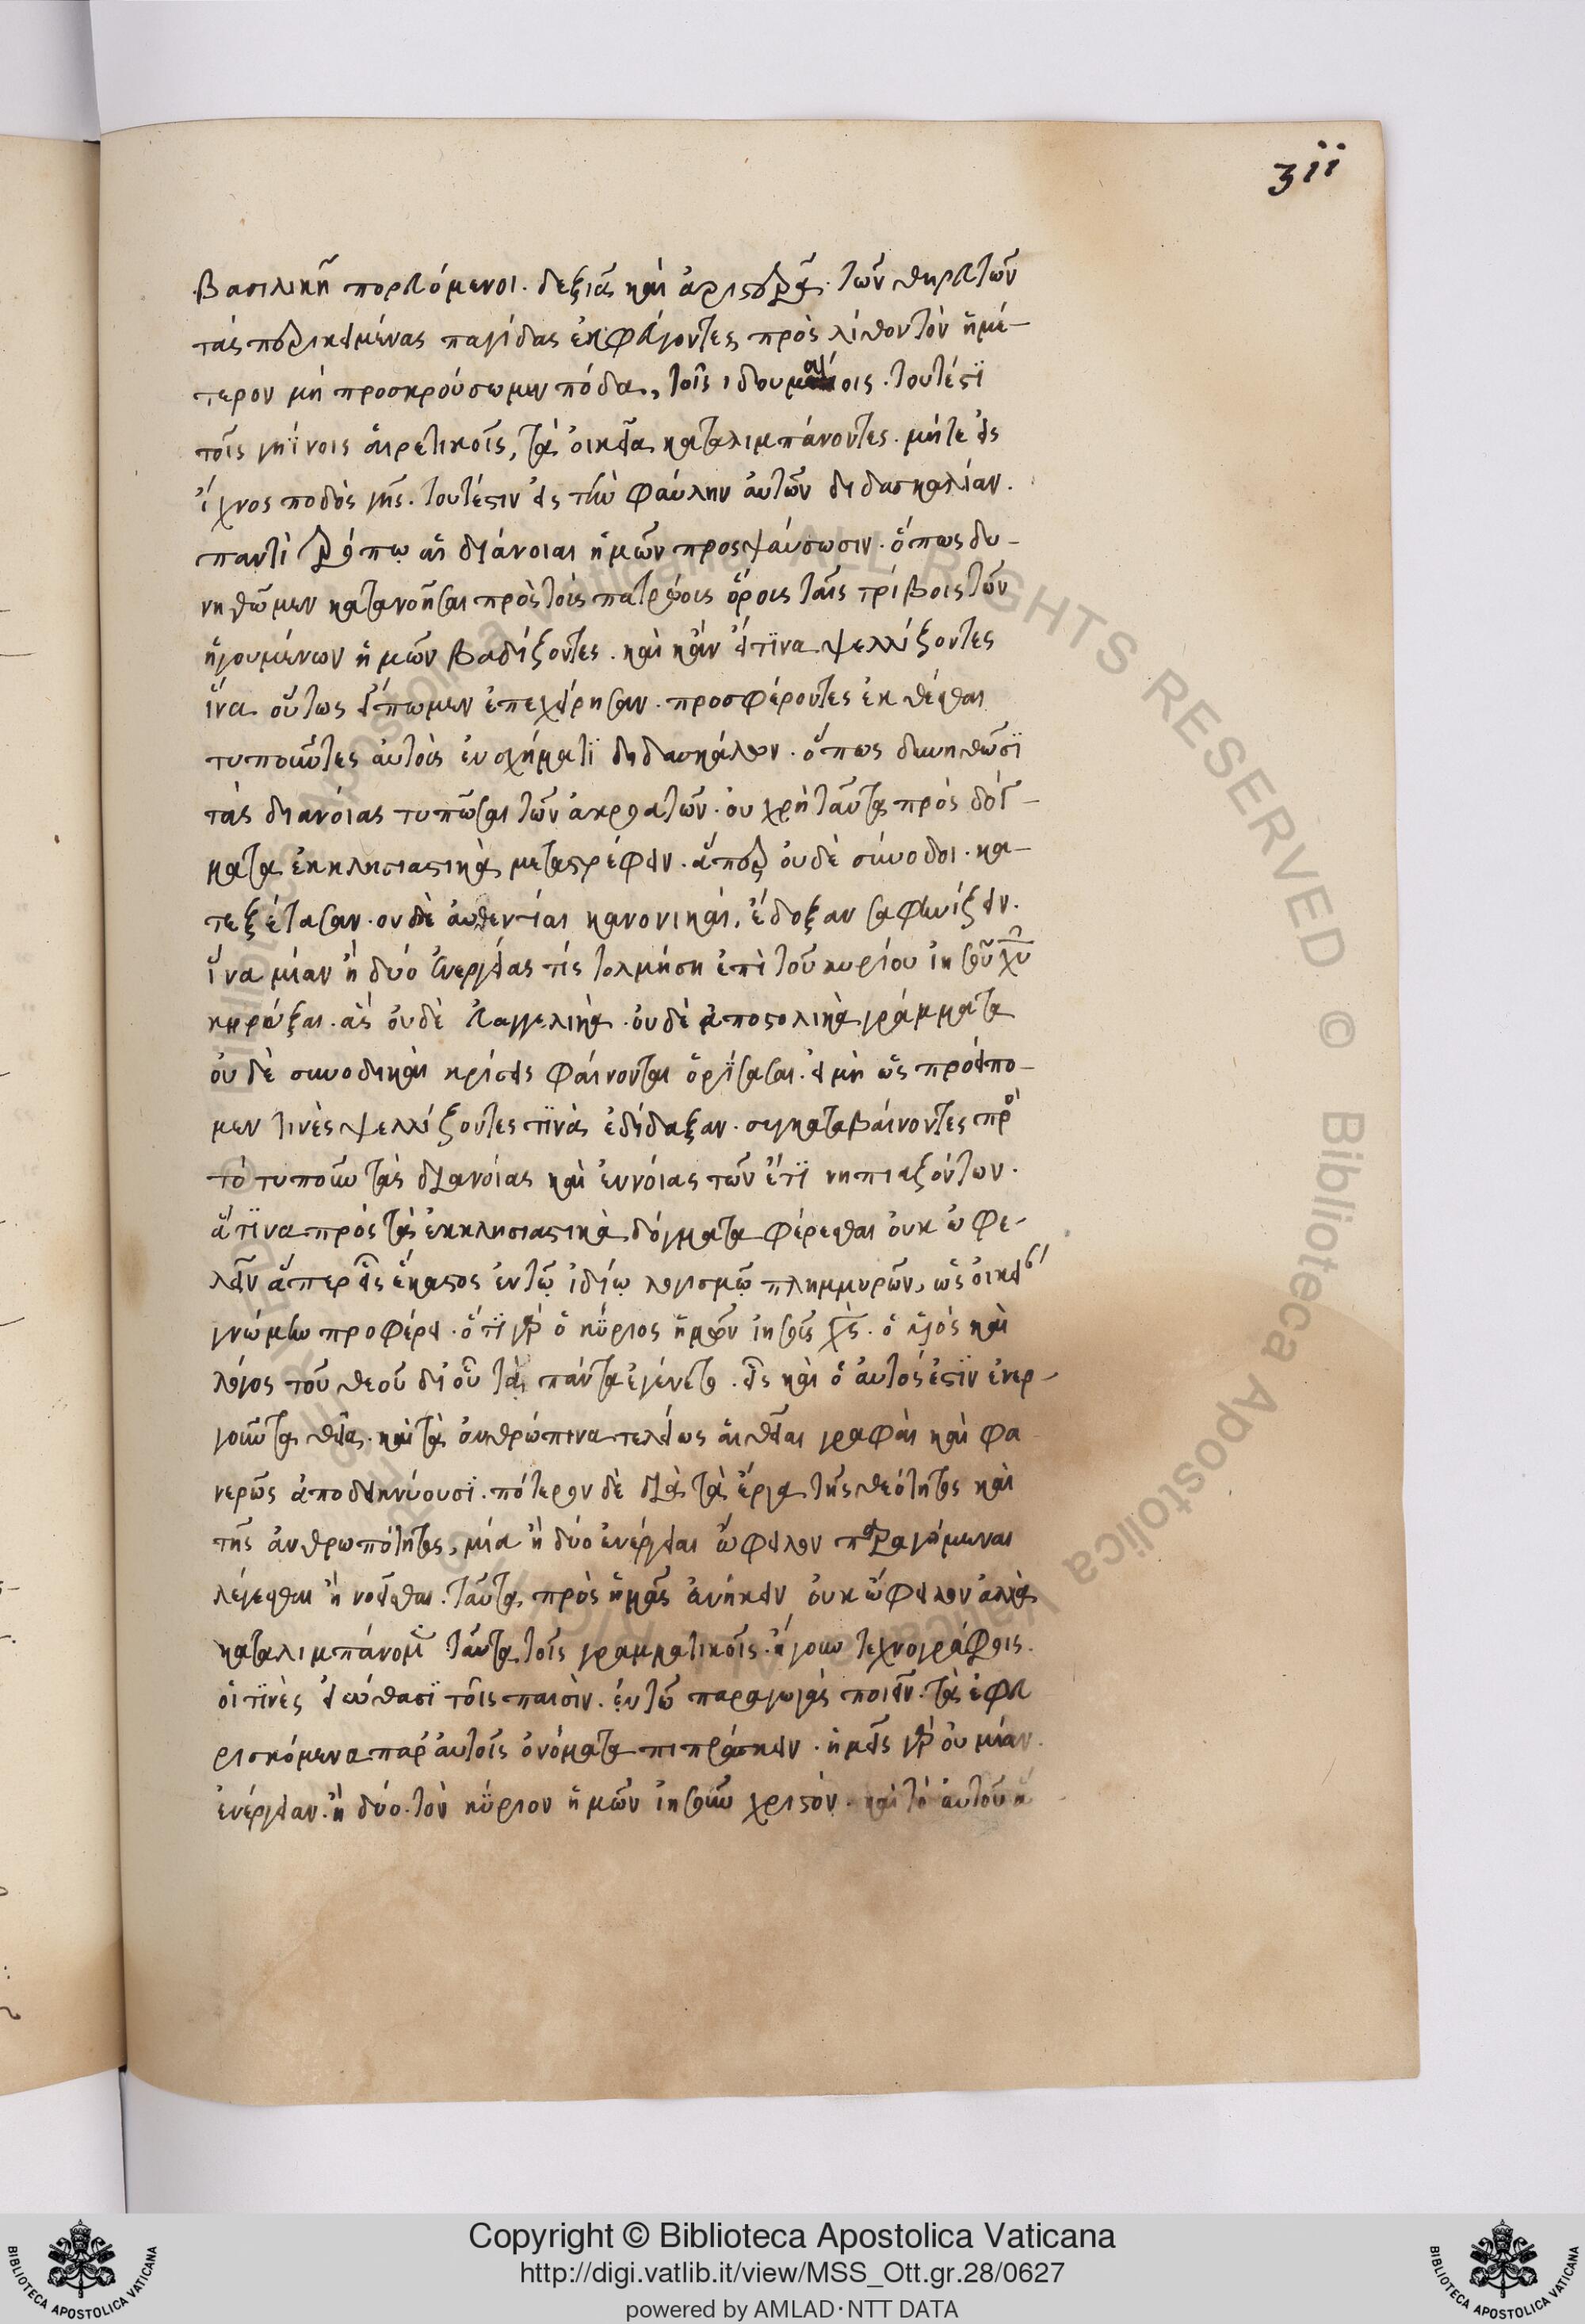 311
βασιλικῇ πορευόμενοι. δεξιᾶ καὶ ἀριστερᾶ. τῶν θηρευτῶν
τὰς περικειμένας παγίδας ἐκφεύγοντες, πρὸς λίθον τὸν ἡμέ-
τερον μὴ προσκρούσωμεν πόδα, τοῖς ιδουμαίοις. τουτέστϊ
τοῖς γηΐνοις αἱρετικοῖς, τὰ οἰκεῖα καταλιμπάνοντες. μήτε εἰς
ἴχνος ποδὸς γῆς. τουτέστιν εἰς τὴν φαύλην αὐτῶν διδασκαλίαν.
παντὶ τρόπῳ αἱ διάνοιαι ἡμῶν προσψαύσωσιν. ὅπως δυ-
νηθῶμεν κατανοῆσαι πρὸς τοῖς πατρῴοις ὅροις ταῖς τρίβοις τῶν
ἡγουμένων ἡμῶν βαδίζοντες. καὶ κἂν εἴ τϊνα ψελλίζοντες
ἵνα οὕτως εἴπωμεν ἐπεχείρησαν. προσφέροντες ἐκθέσθαι
τυποῦντες αὐτοὺς ἐν σχήματϊ διδασκάλων. ὅπως δυνηθῶσϊ
τὰς διανοίας τυπῶσαι τῶν ἀκροατῶν. οὐ χρὴ ταῦτα πρὸς δόγ-
ματα ἐκκλησιαστικὰ μεταστρέφειν. ἅπερ οὐδὲ σύνοδοι. κα-
τεξέτασαν. ουδὲ αὐθεντίαι κανονικαὶ, ἔδοξαν σαφηνίζειν.
ἵνα μίαν ἢ δύο ἐνεργείας τίς τολμήση ἐπὶ τοῦ κυρίου ἰησοῦ χυ
κηρύξαι. ἃς οὐδὲ εὐαγγελικὰ. οὐδὲ ἀποστολικὰ γράμματα
οὐδὲ συνοδικαὶ κρίσεις φαίνονται ὁρίσασαι. εἰ μὴ ὡς προείπο-
μεν τινὲς ψελλίζοντες τϊνὰ ἐδίδαξαν. συγκαταβαίνοντες πρὸ
τὸ τυποῦν τὰς διανοίας καὶ ἐννοίας τῶν ἔτϊ νηπιαζόντων.
ἅτϊνα πρὸς τὰ ἐκκλησιαστικὰ δόγματα φέρεσθαι οὐκ ὠφε-
λεῖν ἅπερ εἷς ἕκαστος ἐν τῷ ἰδίῳ λογισμῷ πλημμυρῶν, ὡς οἰκεί
γνώμην προφέρει. ὅτϊ γὰρ ὁ κύριος ἡμῶν ἰησοῦς χς. ὁ υἱὸς καὶ
λόγος τοῦ θεοῦ δι οὗ τὰ πάντα ἐγένετο. εἷς καὶ ὁ αὐτός ἐστϊν ἐνερ-
γοῦντα θεῖα. καὶ τὰ ἀνθρώπινα τελείως αἱ θεῖαι γραφαὶ καὶ φα
νερῶς ἀποδεικνύουσϊ. πότερον δὲ διὰ τὰ ἔργα τῆς θεότητος καὶ
τῆς ἀνθρωπότητος, μία ἢ δύο ἐνέργειαι ὤφειλον παραγόμεναι
λέγεσθαι ἢ νοεῖσθαι. ταῦτα πρὸς ἡμᾶς ἀνήκειν οὐκ ὤφειλον ἀλλὰ
καταλιμπάνομεν ταῦτα τοῖς γραμματικοῖς. ἤγουν τεχνογράφοις.
οἵ τϊνὲς εἰώθασϊ τοῖς παισὶν. ἐν τῶ παραγωγὰς ποιεῖν. τὰ ἐφευ
ρισκόμενα παρ αὐτοῖς ὀνόματα πιπράσκειν. ἡμεῖς γὰρ οὐ μίαν
ἐνέργειαν. ἢ δύο. τὸν κύριον ἡμῶν ἰησοῦν χριστὸν. καὶ τὸ αὐτοῦ
Copyright © Biblioteca Apostolica Vaticana
http://digi.vatlib.it/view/MSS_Ott.gr.28/0627
powered by AMLAD·NTT DATA
BIBLIOTECA APOSTOLICA VATICANA
BIBLIOTECA APOSTOLICA VATICANA